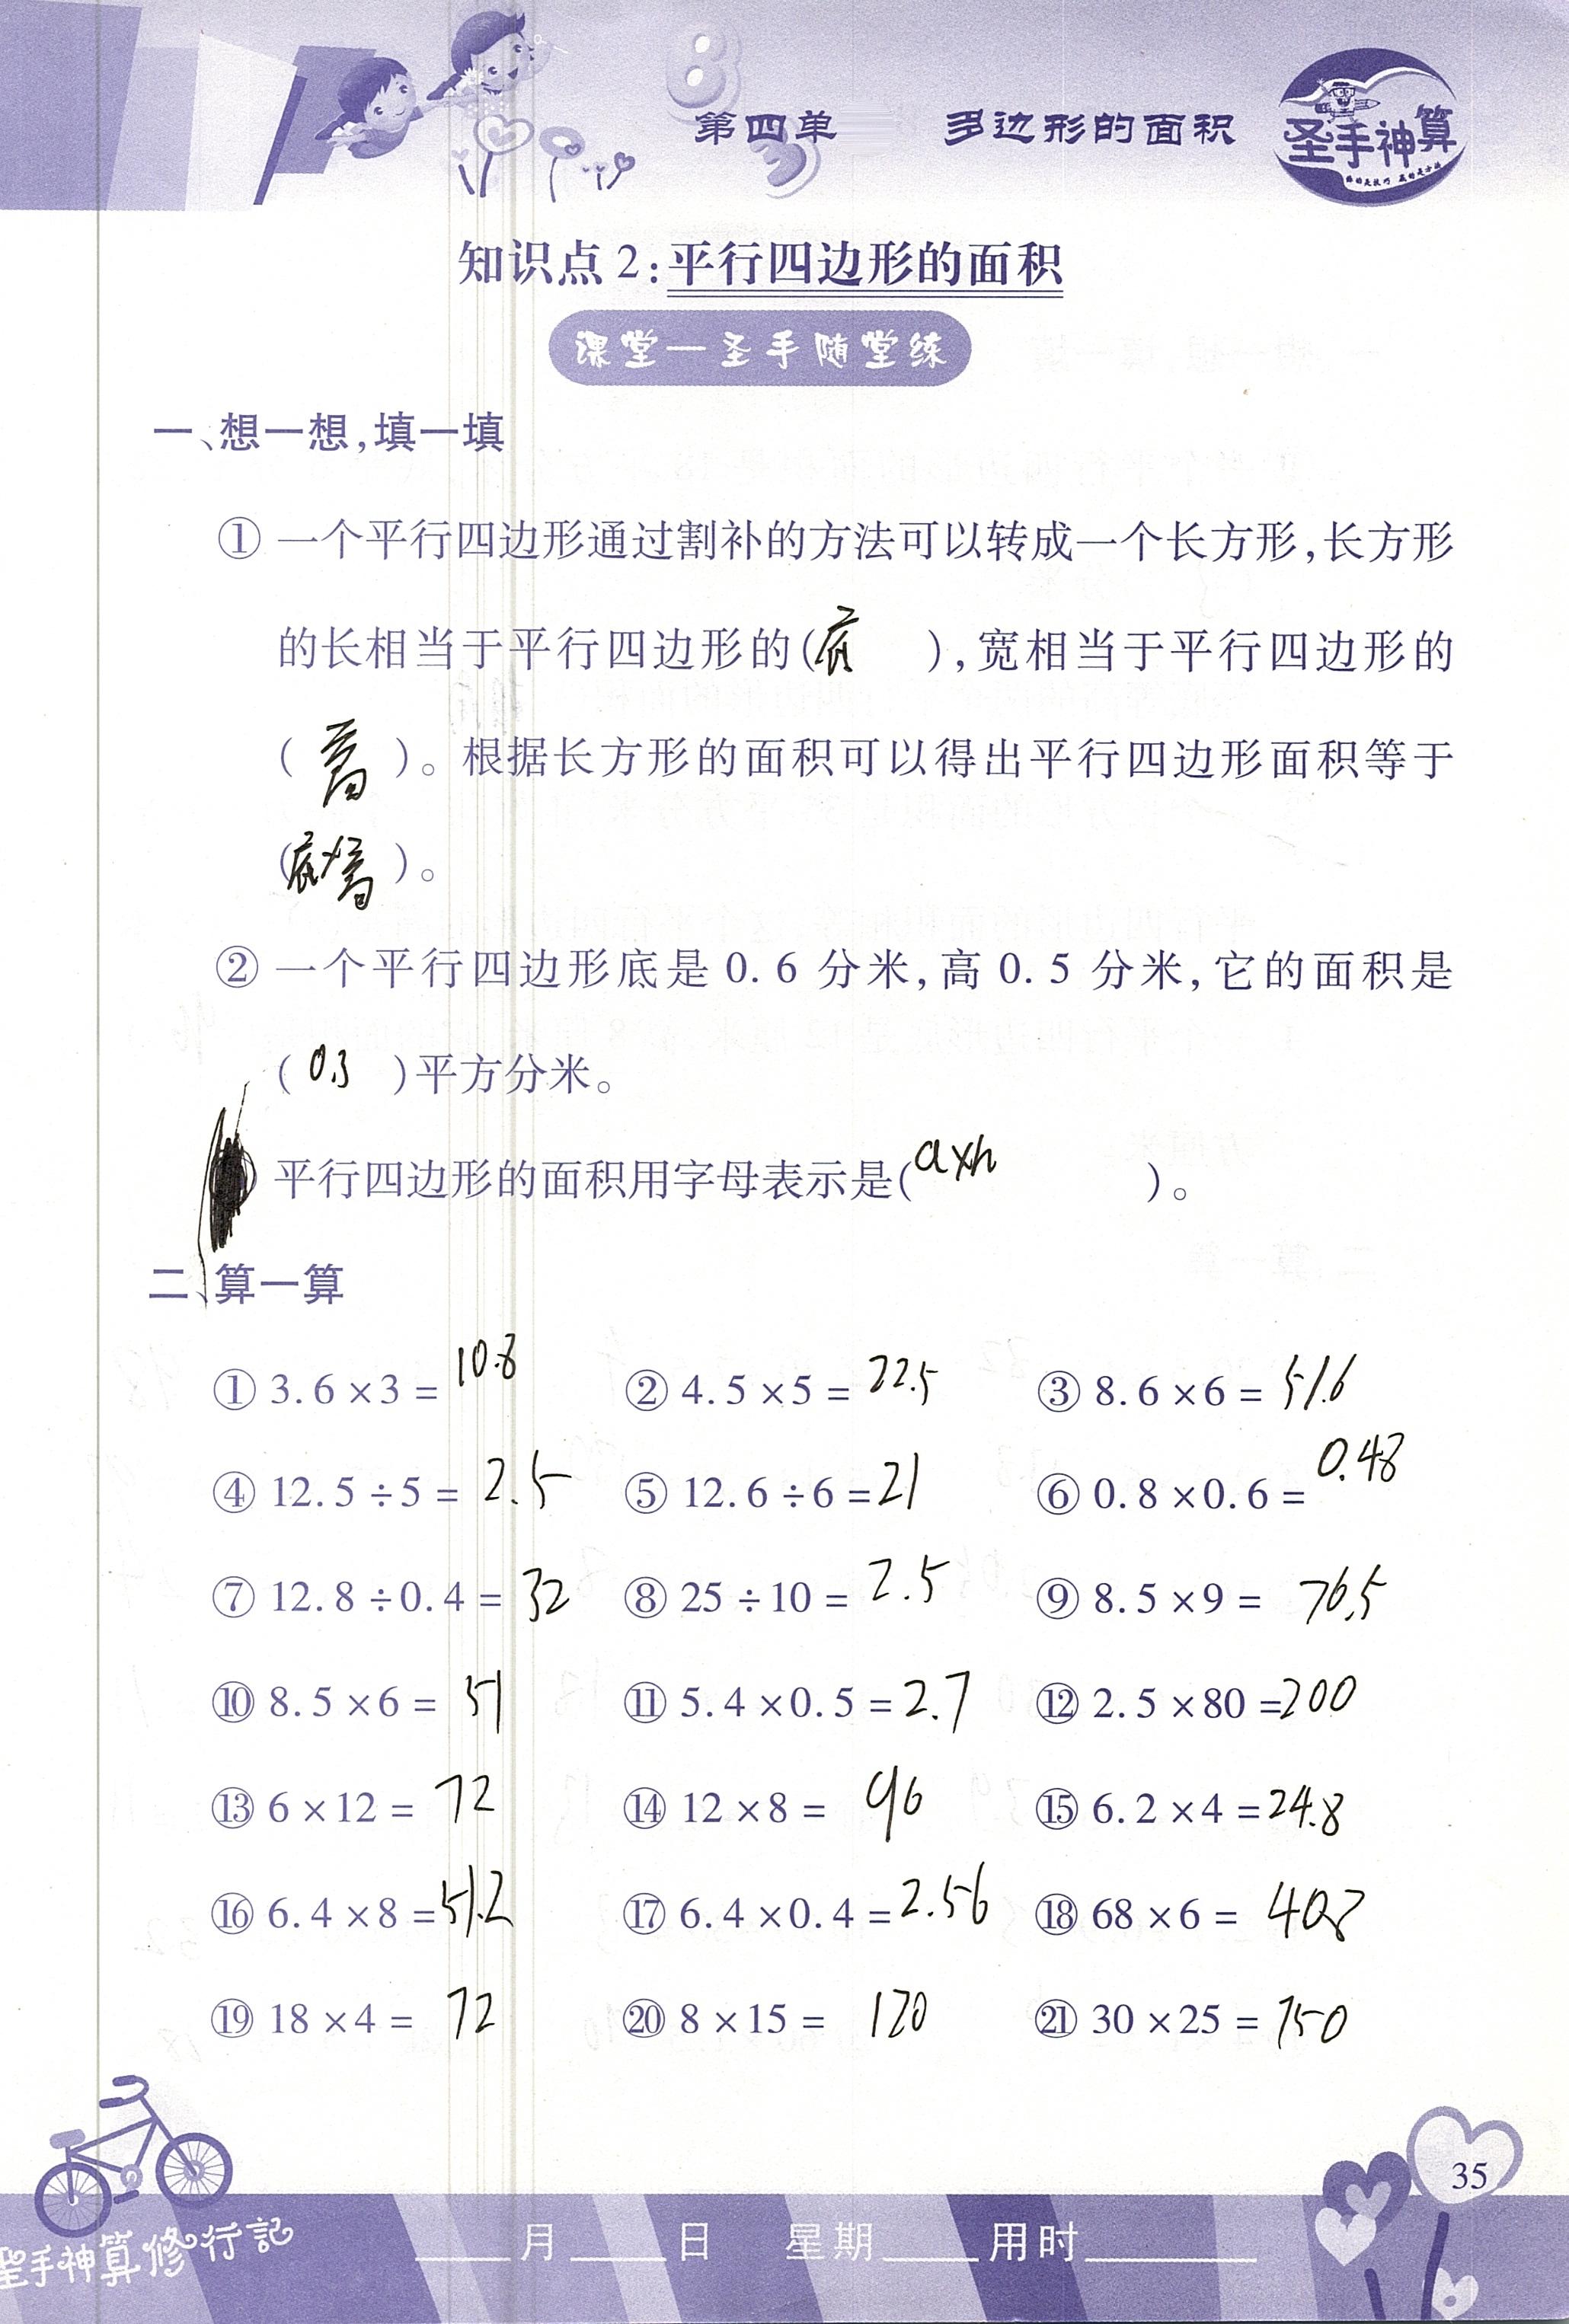 第四单 多边形的面积
圣手神算
知识点2:平行四边形的面积
课堂一圣手随堂练
一、想一想,填一填
① 一个平行四边形通过割补的方法可以转成一个长方形,长方形
的长相当于平行四边形的(底),宽相当于平行四边形的
(高)。根据长方形的面积可以得出平行四边形面积等于
(底×高)。
② 一个平行四边形底是0.6分米,高0.5分米,它的面积是
(0.3)平方分米。
平行四边形的面积用字母表示是(a×h)。
二、算一算
① 3.6×3=10.8 ② 4.5×5=22.5 ③ 8.6×6=51.6
④ 12.5÷5=2.5 ⑤ 12.6÷6=21 ⑥ 0.8×0.6=0.48
⑦ 12.8÷0.4=32 ⑧ 25÷10=2.5 ⑨ 8.5×9=76.5
⑩ 8.5×6=51 ⑪ 5.4×0.5=2.7 ⑫ 2.5×80=200
⑬ 6×12=72 ⑭ 12×8=96 ⑮ 6.2×4=24.8
⑯ 6.4×8=51.2 ⑰ 6.4×0.4=2.56 ⑱ 68×6=408
⑲ 18×4=72 ⑳ 8×15=120 ㉑ 30×25=750
35
圣手神算修行記 ____月____日 星期____用时____